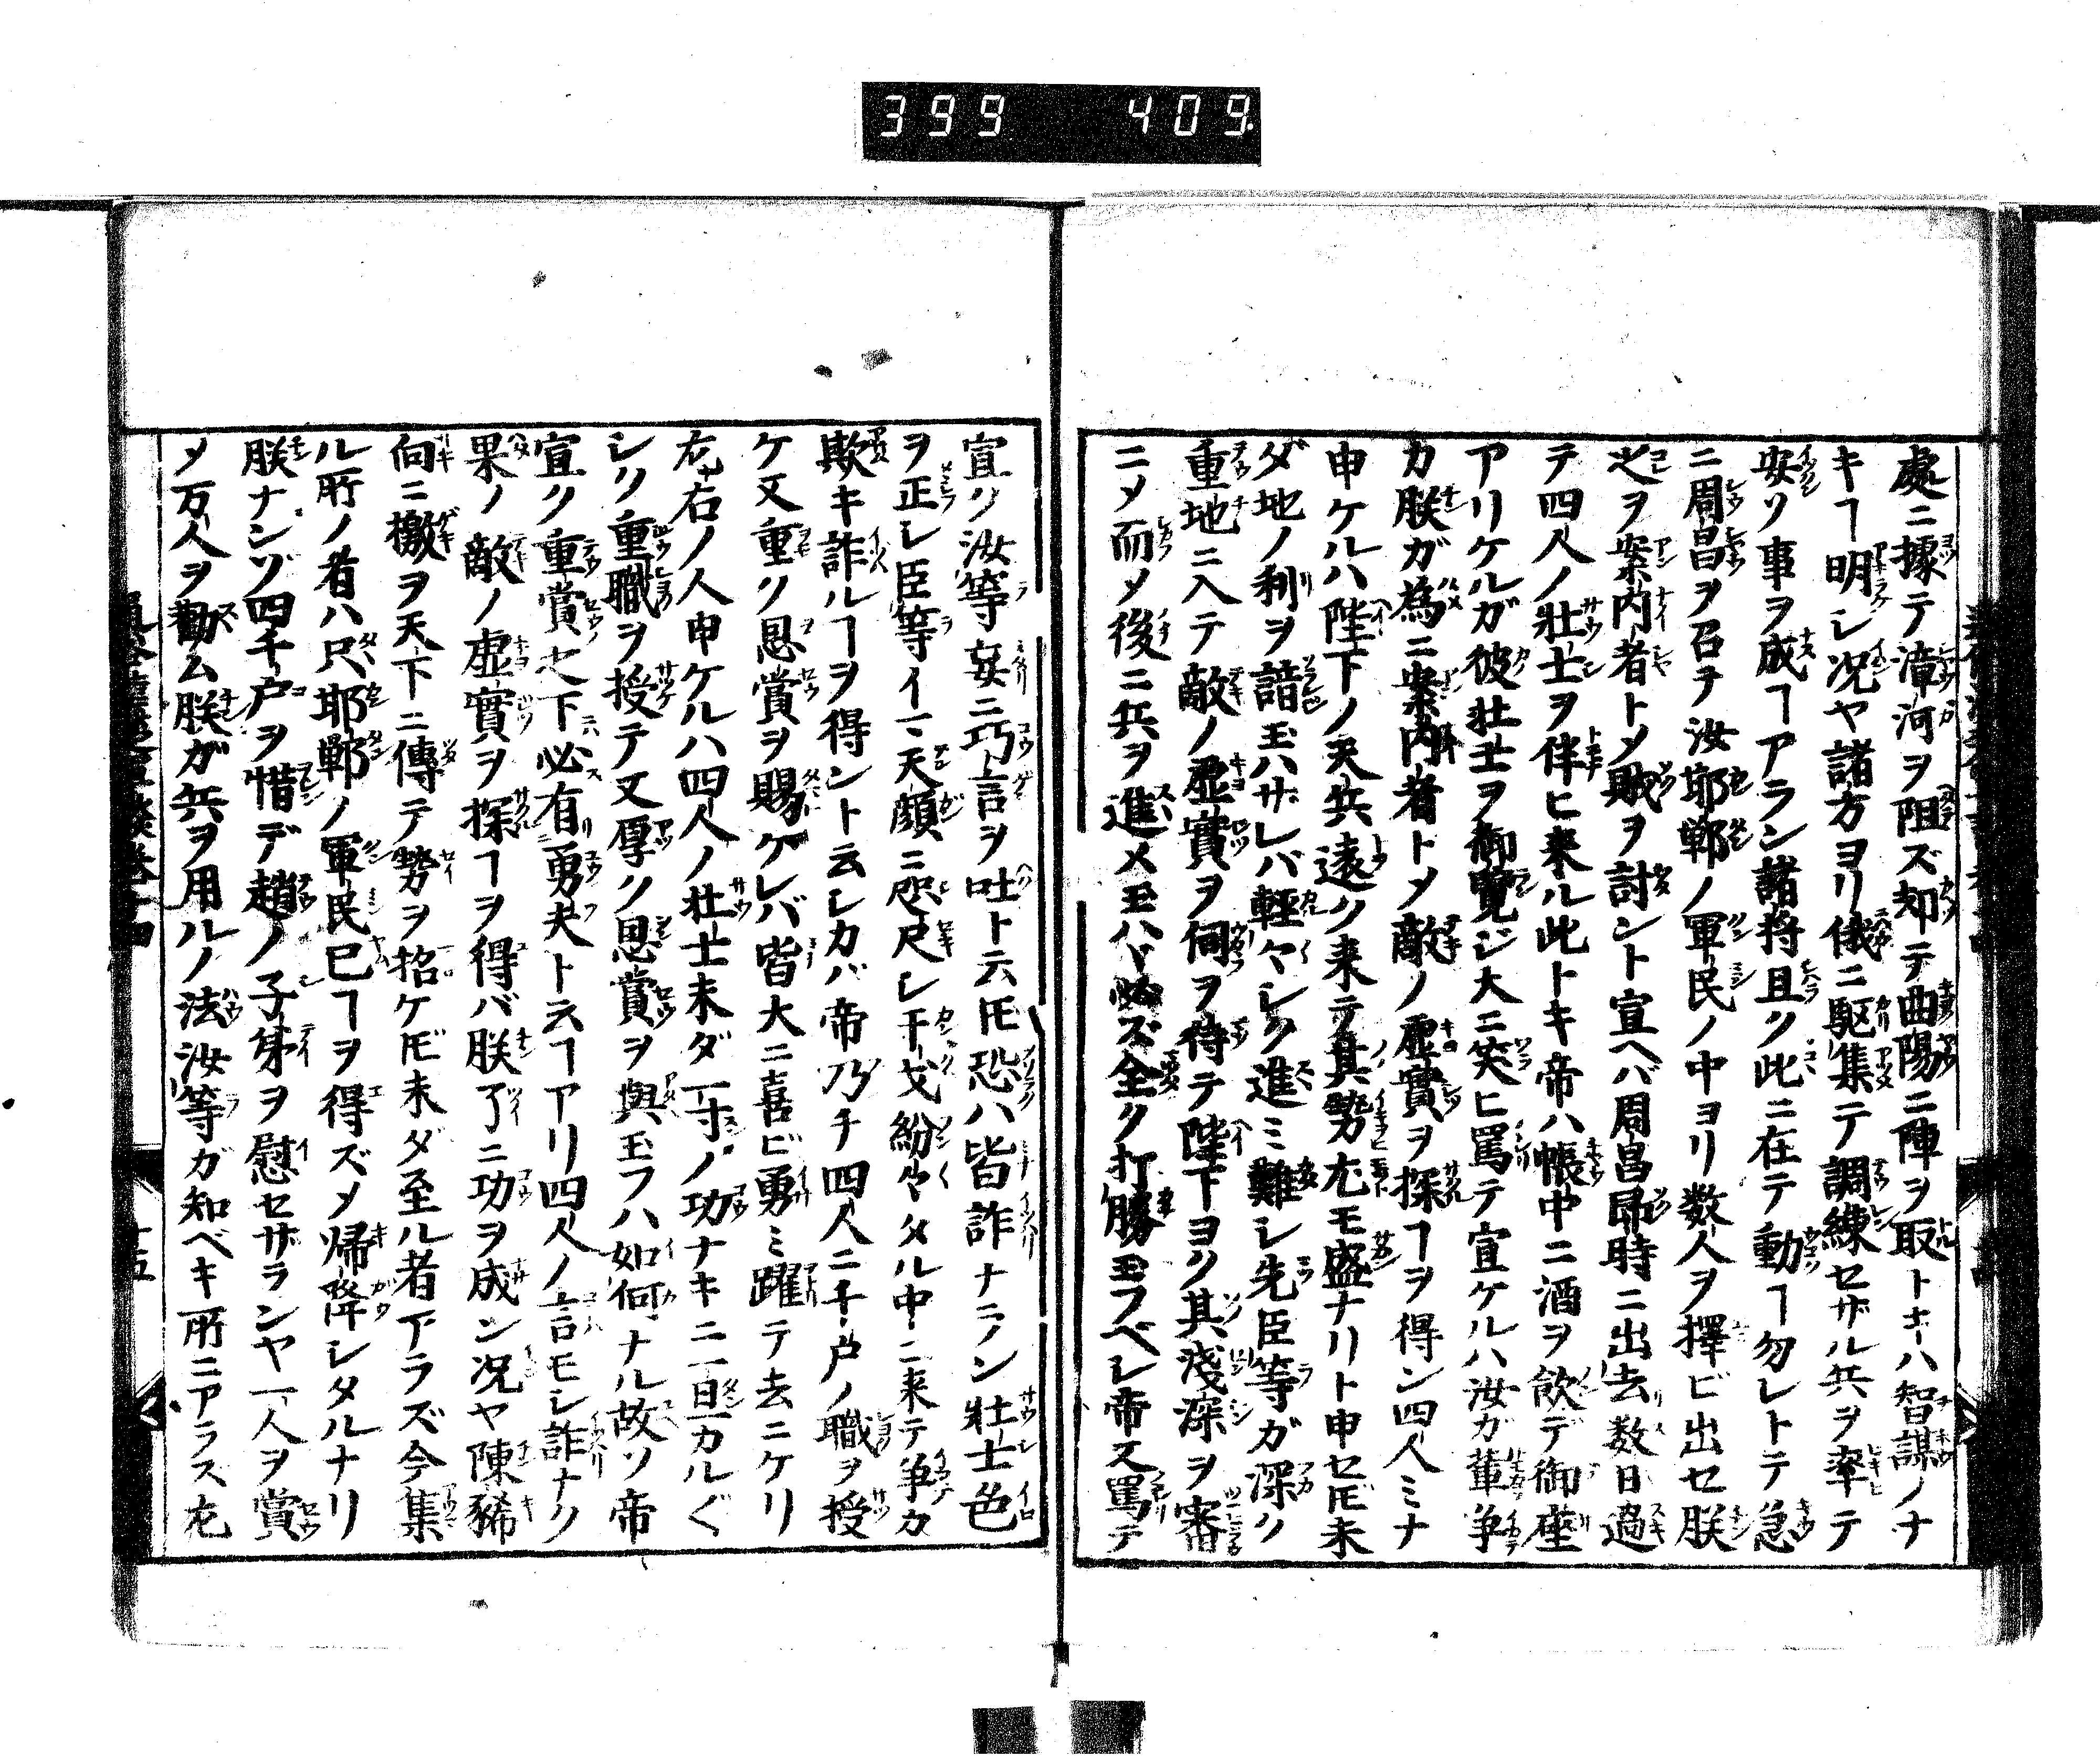 399 409.
處ニ據テ漳河ヲ阻ズ却テ曲陽ニ陣ヲ取トキハ智謀ノナ
キヿ明シ况ヤ諸方ヨリ俄ニ駆集テ調練セザル兵ヲ率テ
安ソ事ヲ成ヿアラン諸将且ク此ニ在テ動ヿ勿レトテ急
ニ周昌ヲ召チ汝耶鄲ノ軍民ノ中ヨリ数人ヲ擇ビ出セ朕
之ヲ案内者トメ賊ヲ討ント宣ヘバ周昌即時ニ出去数日過
テ四人ノ壮士ヲ伴ヒ来ル此トキ帝ハ帳中ニ酒ヲ飲デ御座
アリケルガ彼壮士ヲ御覧ジ大ニ笑ヒ罵テ宣ケルハ汝ガ輩争
カ朕ガ為ニ案内者トメ敵ノ虚實ヲ探ヿヲ得ン四人ミナ
申ケルハ陛下ノ天兵遠ク来テ其勢尤モ盛ナリト申セ𪜈未
ダ地ノ利ヲ諳玉ハザレバ輕々シク進ミ難シ先臣等ガ深ク
重地ニ入テ敵ノ虚實ヲ伺ヲ待テ陛下ヨク其淺深ヲ審
ニメ而メ後ニ兵ヲ進メ玉ハヾ必ズ全ク打勝玉フベシ帝又罵テ
宣ク汝等妄ニ巧言ヲ吐ト云𪜈恐ハ皆詐ナラン壮士色
ヲ正シ臣等イマ天顔ニ咫尺シ干戈紛々タル中ニ来テ争カ
欺キ詐ルヿヲ得ント云シカバ帝乃チ四人ニ千戸ノ職ヲ授
ケ又重ク恩賞ヲ賜ケレバ皆大ニ喜ビ勇ミ躍テ去ニケリ
左右ノ人申ケルハ四人ノ壮士未ダ一寸ノ功ナキニ一旦カルぐ
シク重職ヲ授テ又厚ク恩賞ヲ與玉フハ如何ナル故ソ帝
宣ク重賞之下必有勇夫ト云ヿアリ四人ノ言モシ詐ナク
果ノ敵ノ虚實ヲ探ヿヲ得バ朕了ニ功ヲ成ン况ヤ陳豨
向ニ檄ヲ天下ニ傳テ勢ヲ招ケ𪜈未ダ至ル者アラズ今集
ル所ノ者ハ只耶鄲ノ軍民已ヿヲ得ズメ帰降シタルナリ
朕ナンゾ四千戸ヲ惜デ趙ノ子弟ヲ慰セザランヤ一人ヲ賞
メ万人ヲ勸ム朕ガ兵ヲ用ルノ法汝等ガ知ベキ所ニアラス左
十五